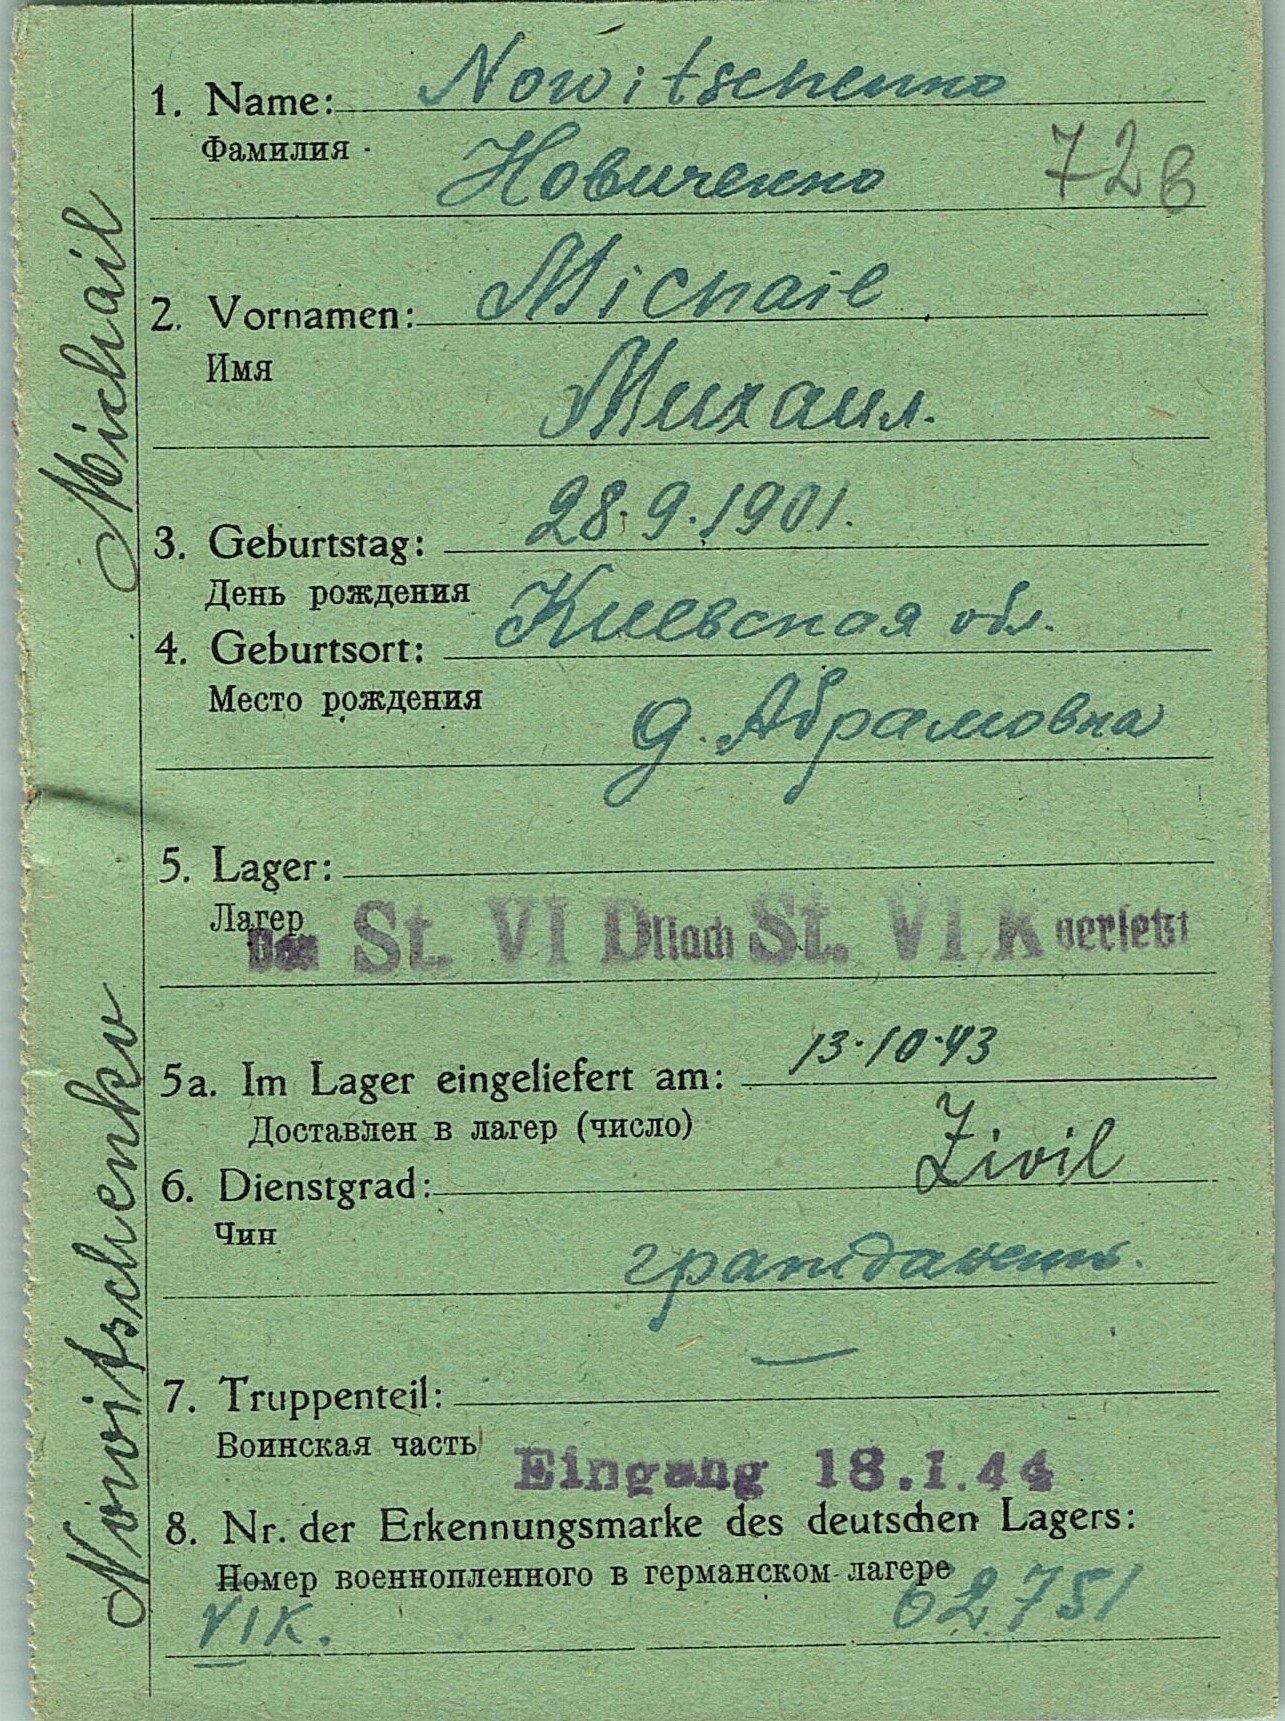 1. Name: Nowitschenko
Фамилия Новиченко 72в
2. Vornamen: Michail
Имя Михаил.
3. Geburtstag: 28.9.1901.
День рождения
4. Geburtsort: Киевская обл.
Место рождения д. Абрамовка
5. Lager:
Лагер
Von St. VI D nach St. VI K versetzt
5a. Im Lager eingeliefert am: 13.10.43
Доставлен в лагер (число)
6. Dienstgrad: Zivil
Чин
7. Truppenteil: —
Воинская часть
Eingang 18.1.44
8. Nr. der Erkennungsmarke des deutschen Lagers:
Номер военнопленного в германском лагере
VIK. 62751
Nowitschenko Michail